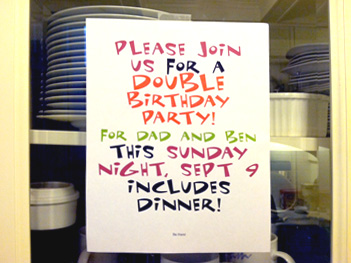 PLEASE JOIN
US FOR A
DOUBLE
BIRTHDAY
PARTY!
FOR DAD AND BEN
THIS SUNDAY
NIGHT, SEPT 9
INCLUDES
DINNER!